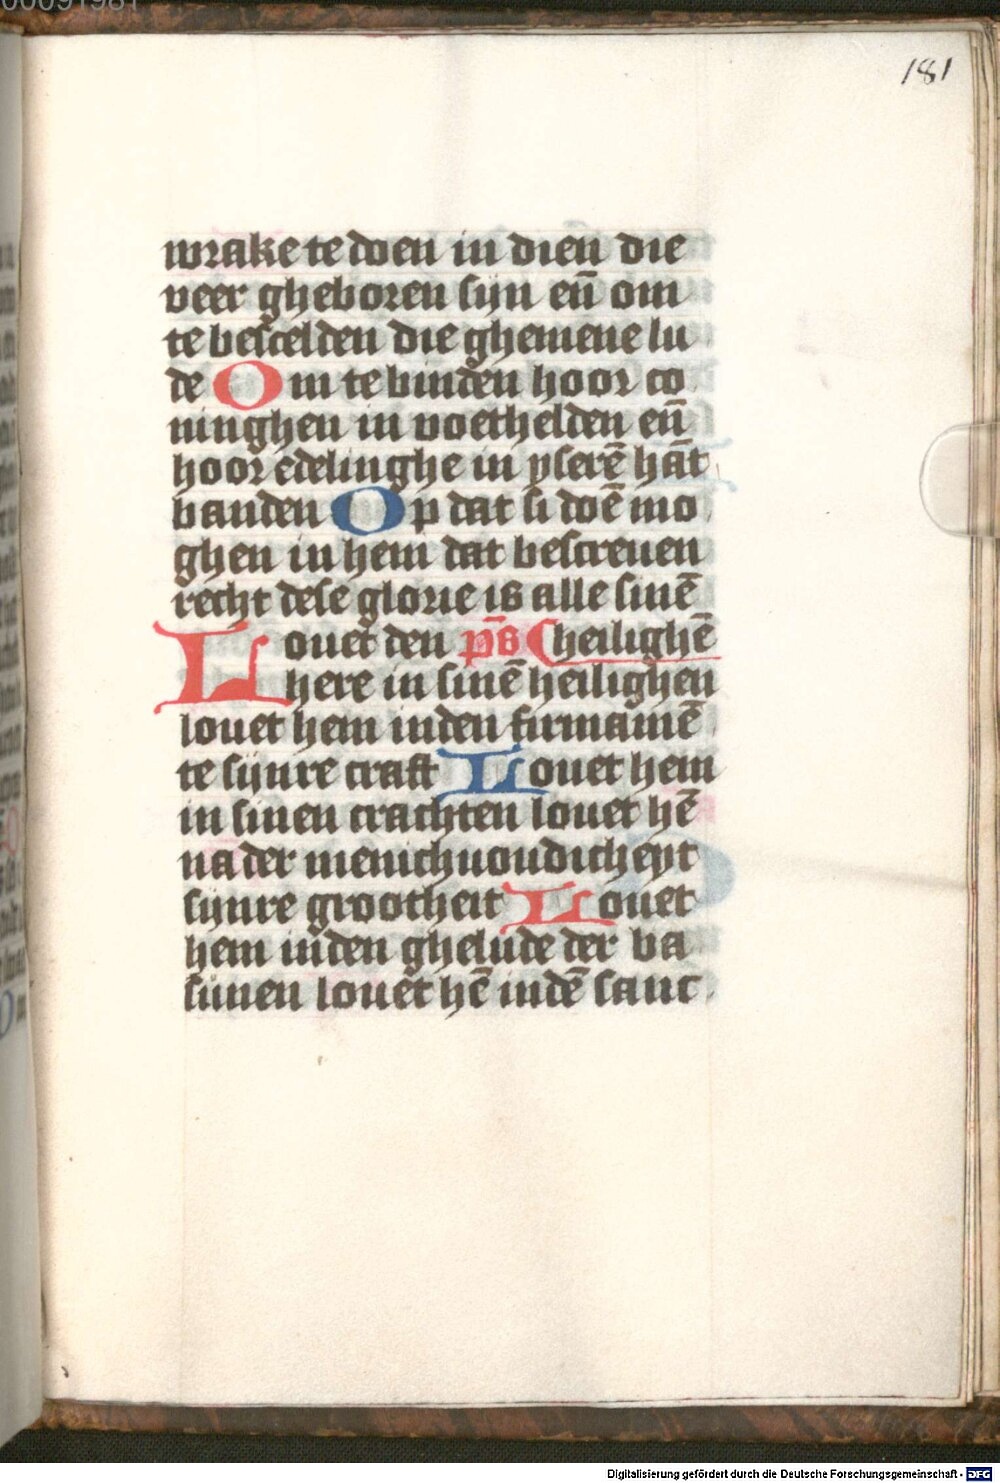 181
wrake te doen in dien die
veer gheboren sijn eñ om
te bescelden die ghemene lu
de Om te binden hoor co
ninghen in voethelden eñ
hoor edelinghe in yserē hāt
banden Op dat si doē mo
ghen in hem dat bescreuen
recht dese glorie is alle sinē
Louet den p̄s heilighē
here in sinē heilighen
louet hem inden firmamē
te sijnre craft Louet hem
in sinen crachten louet hē
na der menichuoudicheyt
sijnre grootheit Louet
hem inden ghelude der ba
sunen louet hē indē sanc
Digitalisierung gefördert durch die Deutsche Forschungsgemeinschaft - DFG